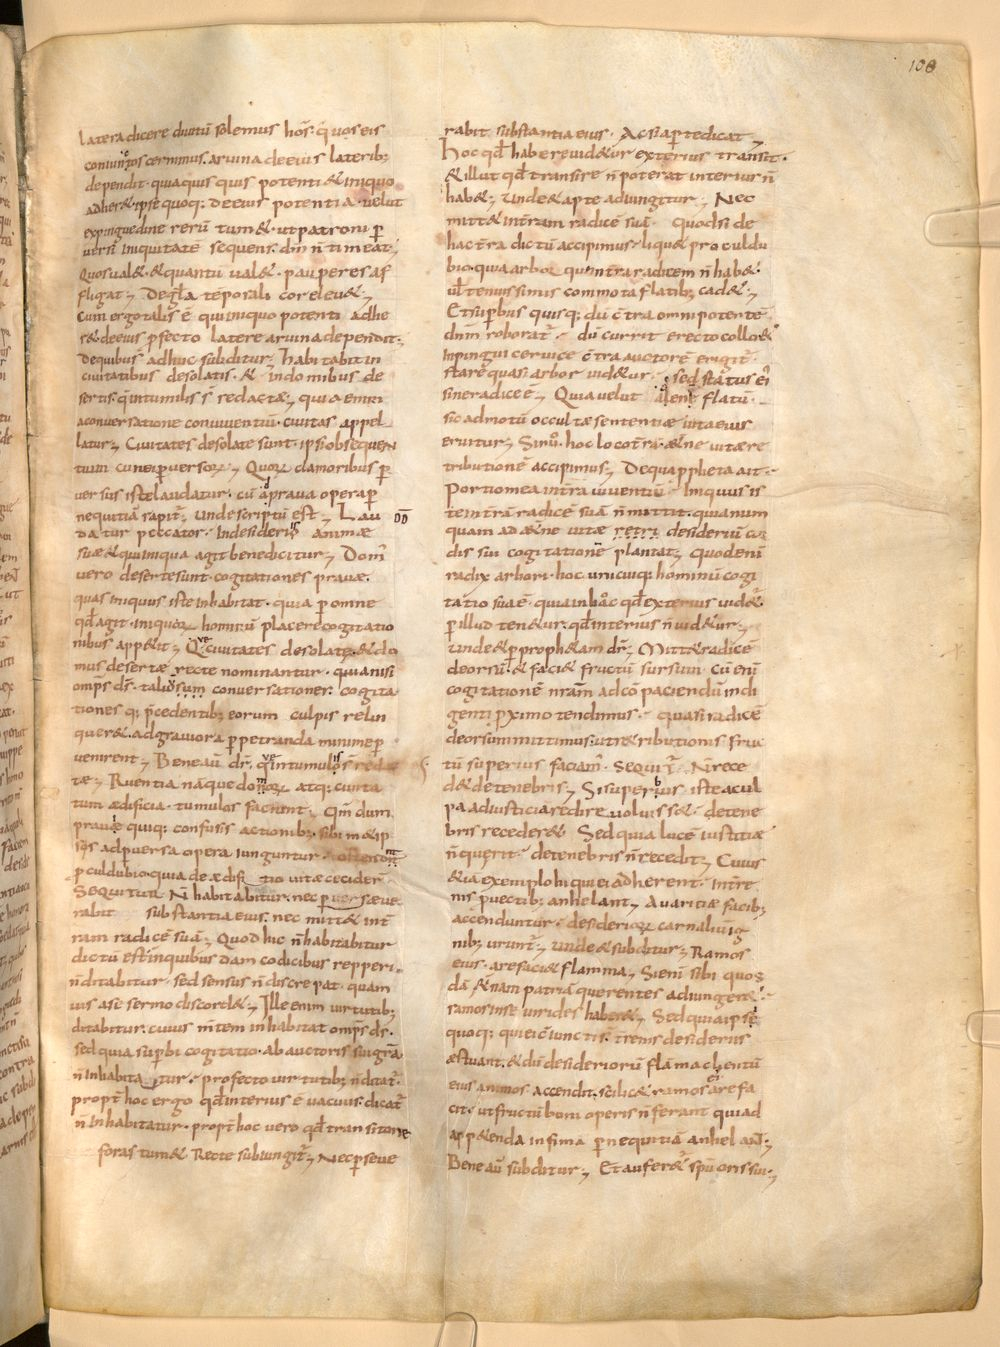 108
latera dicere diuitū solemus hos̄. q̄uos eis
coniunctos cernimus. aruina de eius laterib;
dependit. quia quisquis potenti & iniquo
adher&. ipse quoq; de eius potentia. uelut
expinguedine rerū tum&. ut patroni p̄
uersi iniquitatē sequens. dm̄ n̄ timeat;
Quos ual&. & quantū ual&. pauperes af
fligat; De gła tēporali cor eleu&;
Cum ergo talis ē qui iniquo potenti adhe
r&. de eius pfecto latere aruina dependit.
De quibus adhuc subditur; habitabit in
ciuitatibus desolatis. & in domibus de
sertis. q̄ in tumulis s̄ redactæ; quia enim
a conversatione conuiuentiū. ciuitas appel
latur; Ciuitates desolate sunt. ipsi obsequen
tium cunei puersoꝝ; Quoꝝ clamoribus p
uersus iste laudatur. cū a praua opera p
nequitiā rapit̄; unde scriptū est; Lau
datur peccator. in desideriis animæ
suæ & qui iniqua agit benedicitur; Dom'
uero deserte sunt. cogitationes prauæ.
quas iniquus iste inhabitat. quia p omne
qđ agit. iniquoꝝ hominū placere cogitatio
nibus app&it; Q ve ciuitates desolatę. & do
mus desertæ recte nominantur. quia nisi
omps ds̄. taliū sum conuersationes. cogita
tiones q; p̄cedentib; eorum culpis relin
quer&. ad grauiora ppetranda minime p
uenirent; Bene aū dr̄. q̄ ve in tumulis s̄ redac
tæ; Ruentia nāque domoꝝ atq; cuncta
tum ædificia. tumulos faciunt. Qm̄ dum
praue quiq; confusis actionib; sibi in & ip
sos ad puersa opera iunguntur. ostendunt
p culdubio. quia de ædificatio uitæ ceciderū
Sequitur N̄ habitabitur. nec p uer sæue
rabit substantia eius. nec mitt& int̄
ram radicē suā; Quod hic n̄ habitabitur
dictū est. in quibusdam codicibus repperi.
n̄ ditabitur. sed sensus n̄ discrepat. quam
uis a se sermo discord&; Ille enim uirtutib;
ditabitur. cuius m̄tem inhabitat omps ds̄.
sed quia supbi cogitatio. ab auctoris sui gr̄a
n̄ inhabitatur. profecto uirtutib; n̄ ditat̄.
propt̄ hoc ergo qđ interius ē uacuus. dicat̄
n̄ inhabitatur. propt̄ hoc uero qđ transitorie
foras tum& Recte subiungit̄; Nec pseue
DD
rabit substantia eius. Ac si apte dicat;
Hoc qđ habere uid&ur exterius transit.
& illut qđ transire n̄ poterat interius n̄
hab&; unde & apte adiungitur; Nec
mitt& int̄ram radicē suā. Quod si de
hac t̄ra dictū accipimus. liqu& procul du
bio. quia arbor quę in t̄ra radicem n̄ hab&.
uł tenuissimis commota flatib; cad&;
Et supbus quisq; dū c̄tra omnipotentē
dnm̄ roborat̄. dū currit erecto collo. &
in pingui ceruice c̄tra auctorē erigit̄.
stare quasi arbor uid&ur. sed status ei'
sine radice ē; Quia uelut a leni flatū.
sic ad motū occultæ sententiæ uita eius
eruitur; Sin ū hoc loco t̄ra. æt̄ne uitæ re
tributionē accipimus; De qua ppheta ait.
Portio mea in t̄ra uiuentiū. Iniquus is
te in t̄rā radicē suā n̄ mittit. quia num
quam ad æt̄ne uitæ retri desideriū cor
dis sui cogitationē plantat; quod enī
radix arbori. hoc unicuiq; hominū cogi
tatio sua ē. quia in hac qđ exterius uid&'.
p illud ten&ur. qđ interius n̄ uid&ur;
unde & p proph&am dr̄; Mitt& radicē
deorsū. & faci& fructū sursum. Cū enī
cogitationē nr̄am ad cōpaciendū indi
genti pximo tendimus. quasi radicē
deorsum mittimus. ut r&ributionis fruc
tū superius faciam̄. Sequit̄. N̄ rece
d& de tenebris; Si superbius iste a cul
pa ad iusticiā redire uoluiss&. de tene
bris receder& Sed quia lucē iustitiæ
n̄ querit. de tenebris n̄ recedit; Cuius
& ia exemplo hi qui ei adherent. in t̄re
nis puectib; anhelant; Auaritiæ facib;
accenduntur. desiderioꝝ carnaliū ig
nib; urunt̄; unde & subditur; Ramos
eius. arefaci& flamma; Si enī sibi quos
dā æt̄nam patriā querentes adiunger&.
ramos in se uirides haber&; Sed quia ipse
quoq; qui ei c̄iuncti s̄. t̄renis desideriis
æstuant. & dū desideriorū flāma clientū
eius animos accendit. scilic& ramos arefa
cit. ut fructū boni operis n̄ ferant quia ad
app&enda infima p nequitiā anhelant;
Bene aū subditur; Et aufer&' spū oris sui;